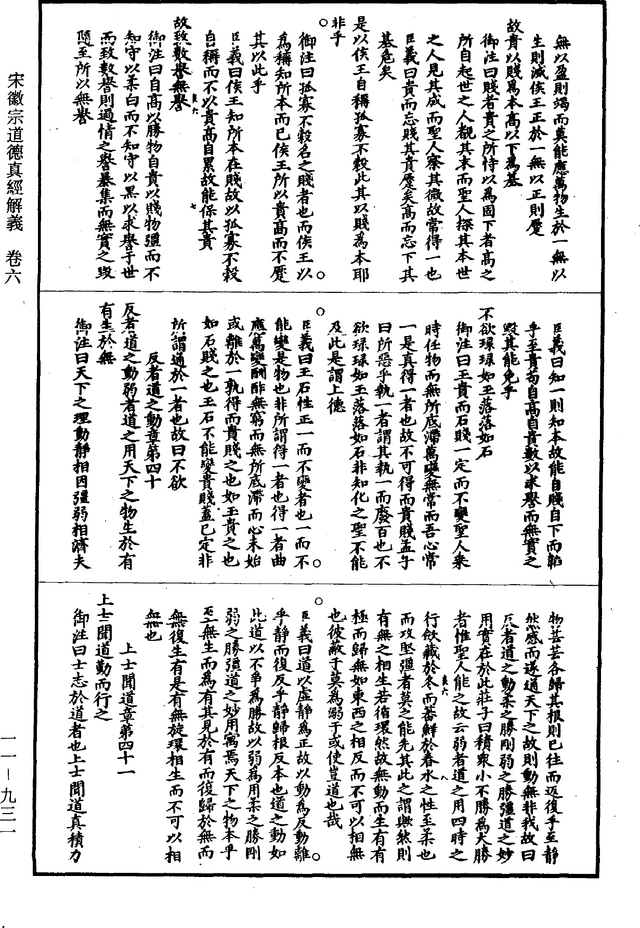 宋徽宗道德真經解義　卷六
無以盈則竭而莫能應萬物生於一無以
生則滅侯王正於一無以正則蹷
故貴以賤為本高以下為基
御注曰賤者貴之所恃以為固下者高之
所自起世之人覩其末而聖人探其本世
之人見其成而聖人察其微故常得一也
臣義曰貴而忘賤其貴蹷矣高而忘下其
基危矣
是以侯王自稱孤寡不穀此其以賤為本耶
非乎
御注曰孤寡不穀名之賤者也而侯王以
為稱知所本而已侯王所以貴高而不蹷
其以此乎
臣義曰侯王知所本在賤故以孤寡不穀
自稱而不以貴高自累故能保其貴
故致數譽無譽
御注曰自高以勝物自貴以賤物彊而不
知守以柔白而不知守以黑以求譽于世
而致數譽則過情之譽暴集而無實之毀
隨至所以無譽
臣義曰知一則知本故能自賤自下而韜
乎至貴苟自高自貴數以求譽而無實之
毀其能免乎
不欲琭琭如玉落落如石
御注曰玉貴而石賤一定而不變聖人乘
時任物而無所底滯萬變無常而吾心常
一是真得一者也故不可得而貴賤孟子
曰所惡乎執一者謂其執一而廢百也不
欲琭琭如玉落落如石非知化之聖不能
及此是謂上德
臣義曰玉石性正一而不變者也一而不
能變是物也非所謂得一者也得一者曲
應萬變酬酢無窮而無所底滯而心未始
或離於一孰得而貴賤之也如玉貴之也
如石賤之也玉石不能變貴賤蓋已定非
所謂通於一者也故曰不欲
反者道之動章第四十
反者道之動弱者道之用天下之物生於有
有生於無
御注曰天下之理動靜相因彊弱相濟夫
物芸芸各歸其根則已往而返復乎至靜
然感而遂通天下之故則動無非我故曰
反者道之動柔之勝剛弱之勝彊道之妙
用實在於此莊子曰積衆小不勝為大勝
者惟聖人能之故云弱者道之用四時之
行歛藏於冬而蕃鮮於春水之性至柔也
而攻堅彊者莫之能先其此之謂歟然則
有無之相生若循環然故無動而生有有
極而歸無如東西之相反而不可以相無
也彼蔽于莫為溺于或使豈道也哉
臣義曰道以虛靜為正故以動為反動離
乎靜而復反乎靜歸根反本也道之動如
此道以不爭為勝故以弱為用柔之勝剛
弱之勝彊道之妙用寓焉天下之物本乎
至無生而為有其見於有而復歸於無而
無復生有是有無旋環相生而不可以相
無也
上士聞道章第四十一
上士聞道勤而行之
御注曰士志於道者也上士聞道真積力
一一－九三一